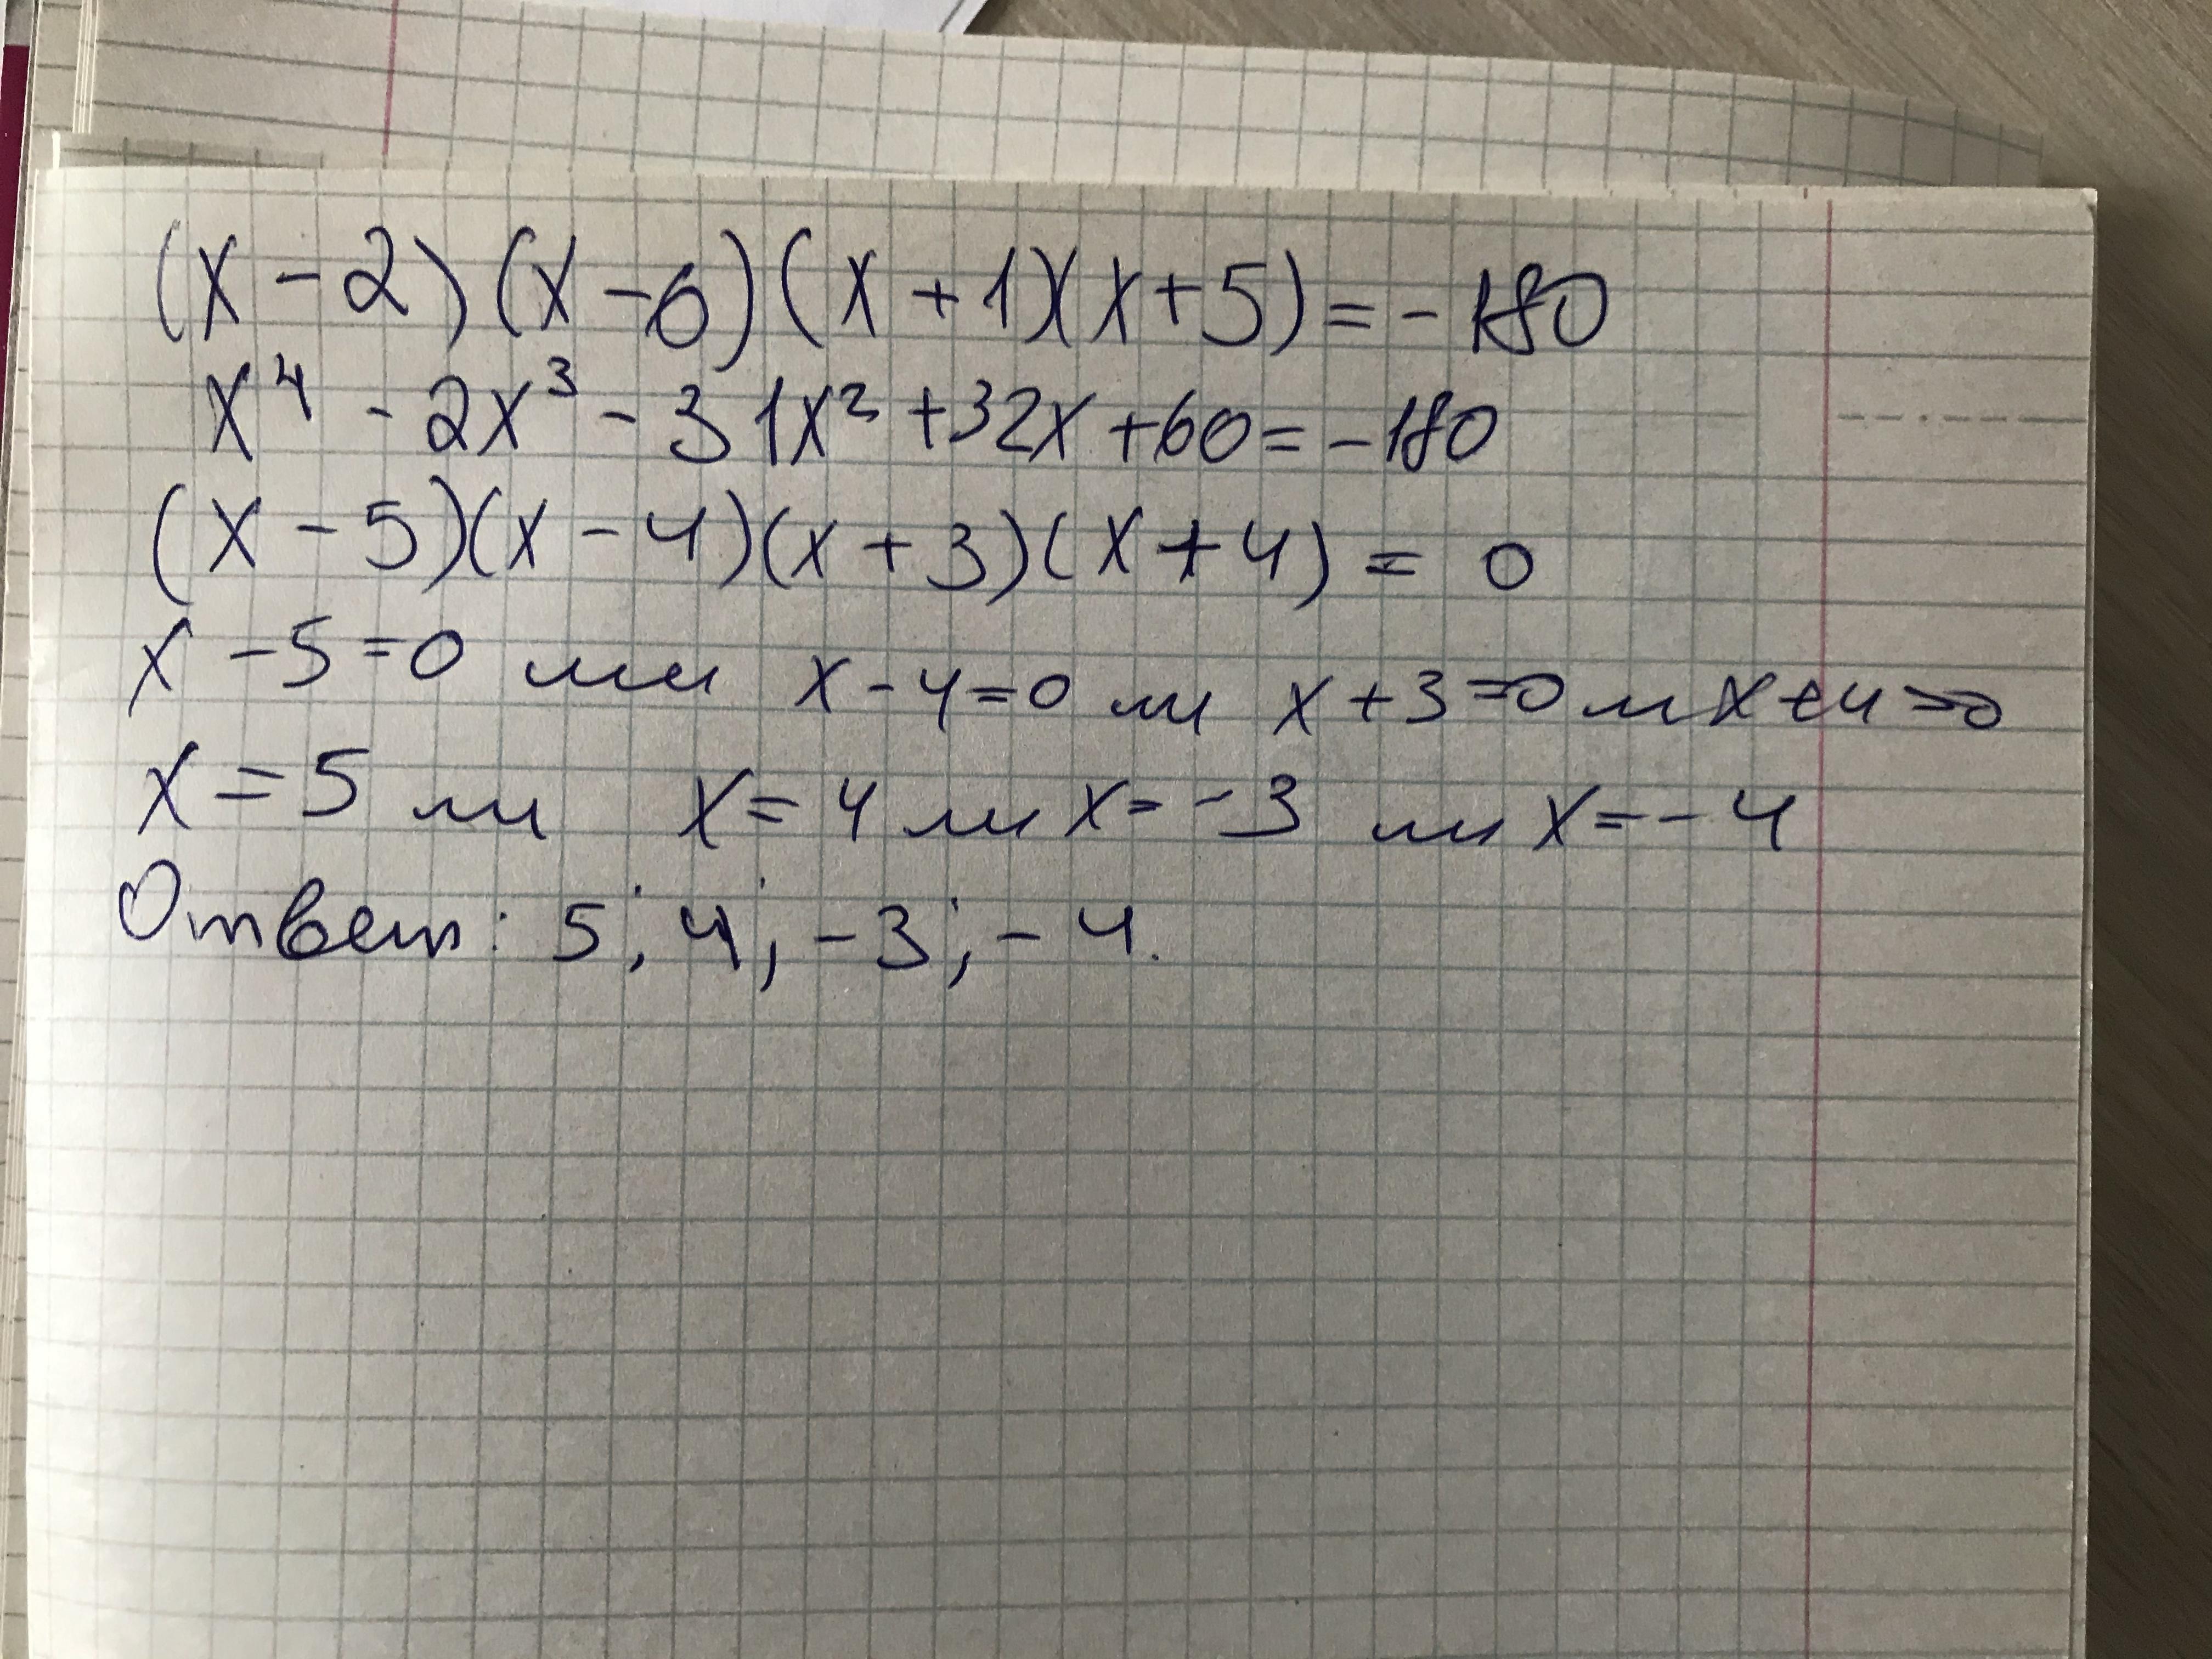 (x-2)(x-6)(x+1)(x+5)=-180
x⁴-2x³-31x²+32x+60=-180
(x-5)(x-4)(x+3)(x+4)=0
x-5=0 или x-4=0 или x+3=0 или x+4=0
x=5 или x=4 или x=-3 или x=-4
Ответ: 5; 4; -3; -4.